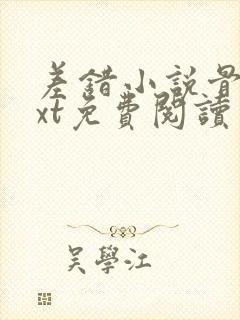 差錯小說骨
xt免費閱讀
吳學江